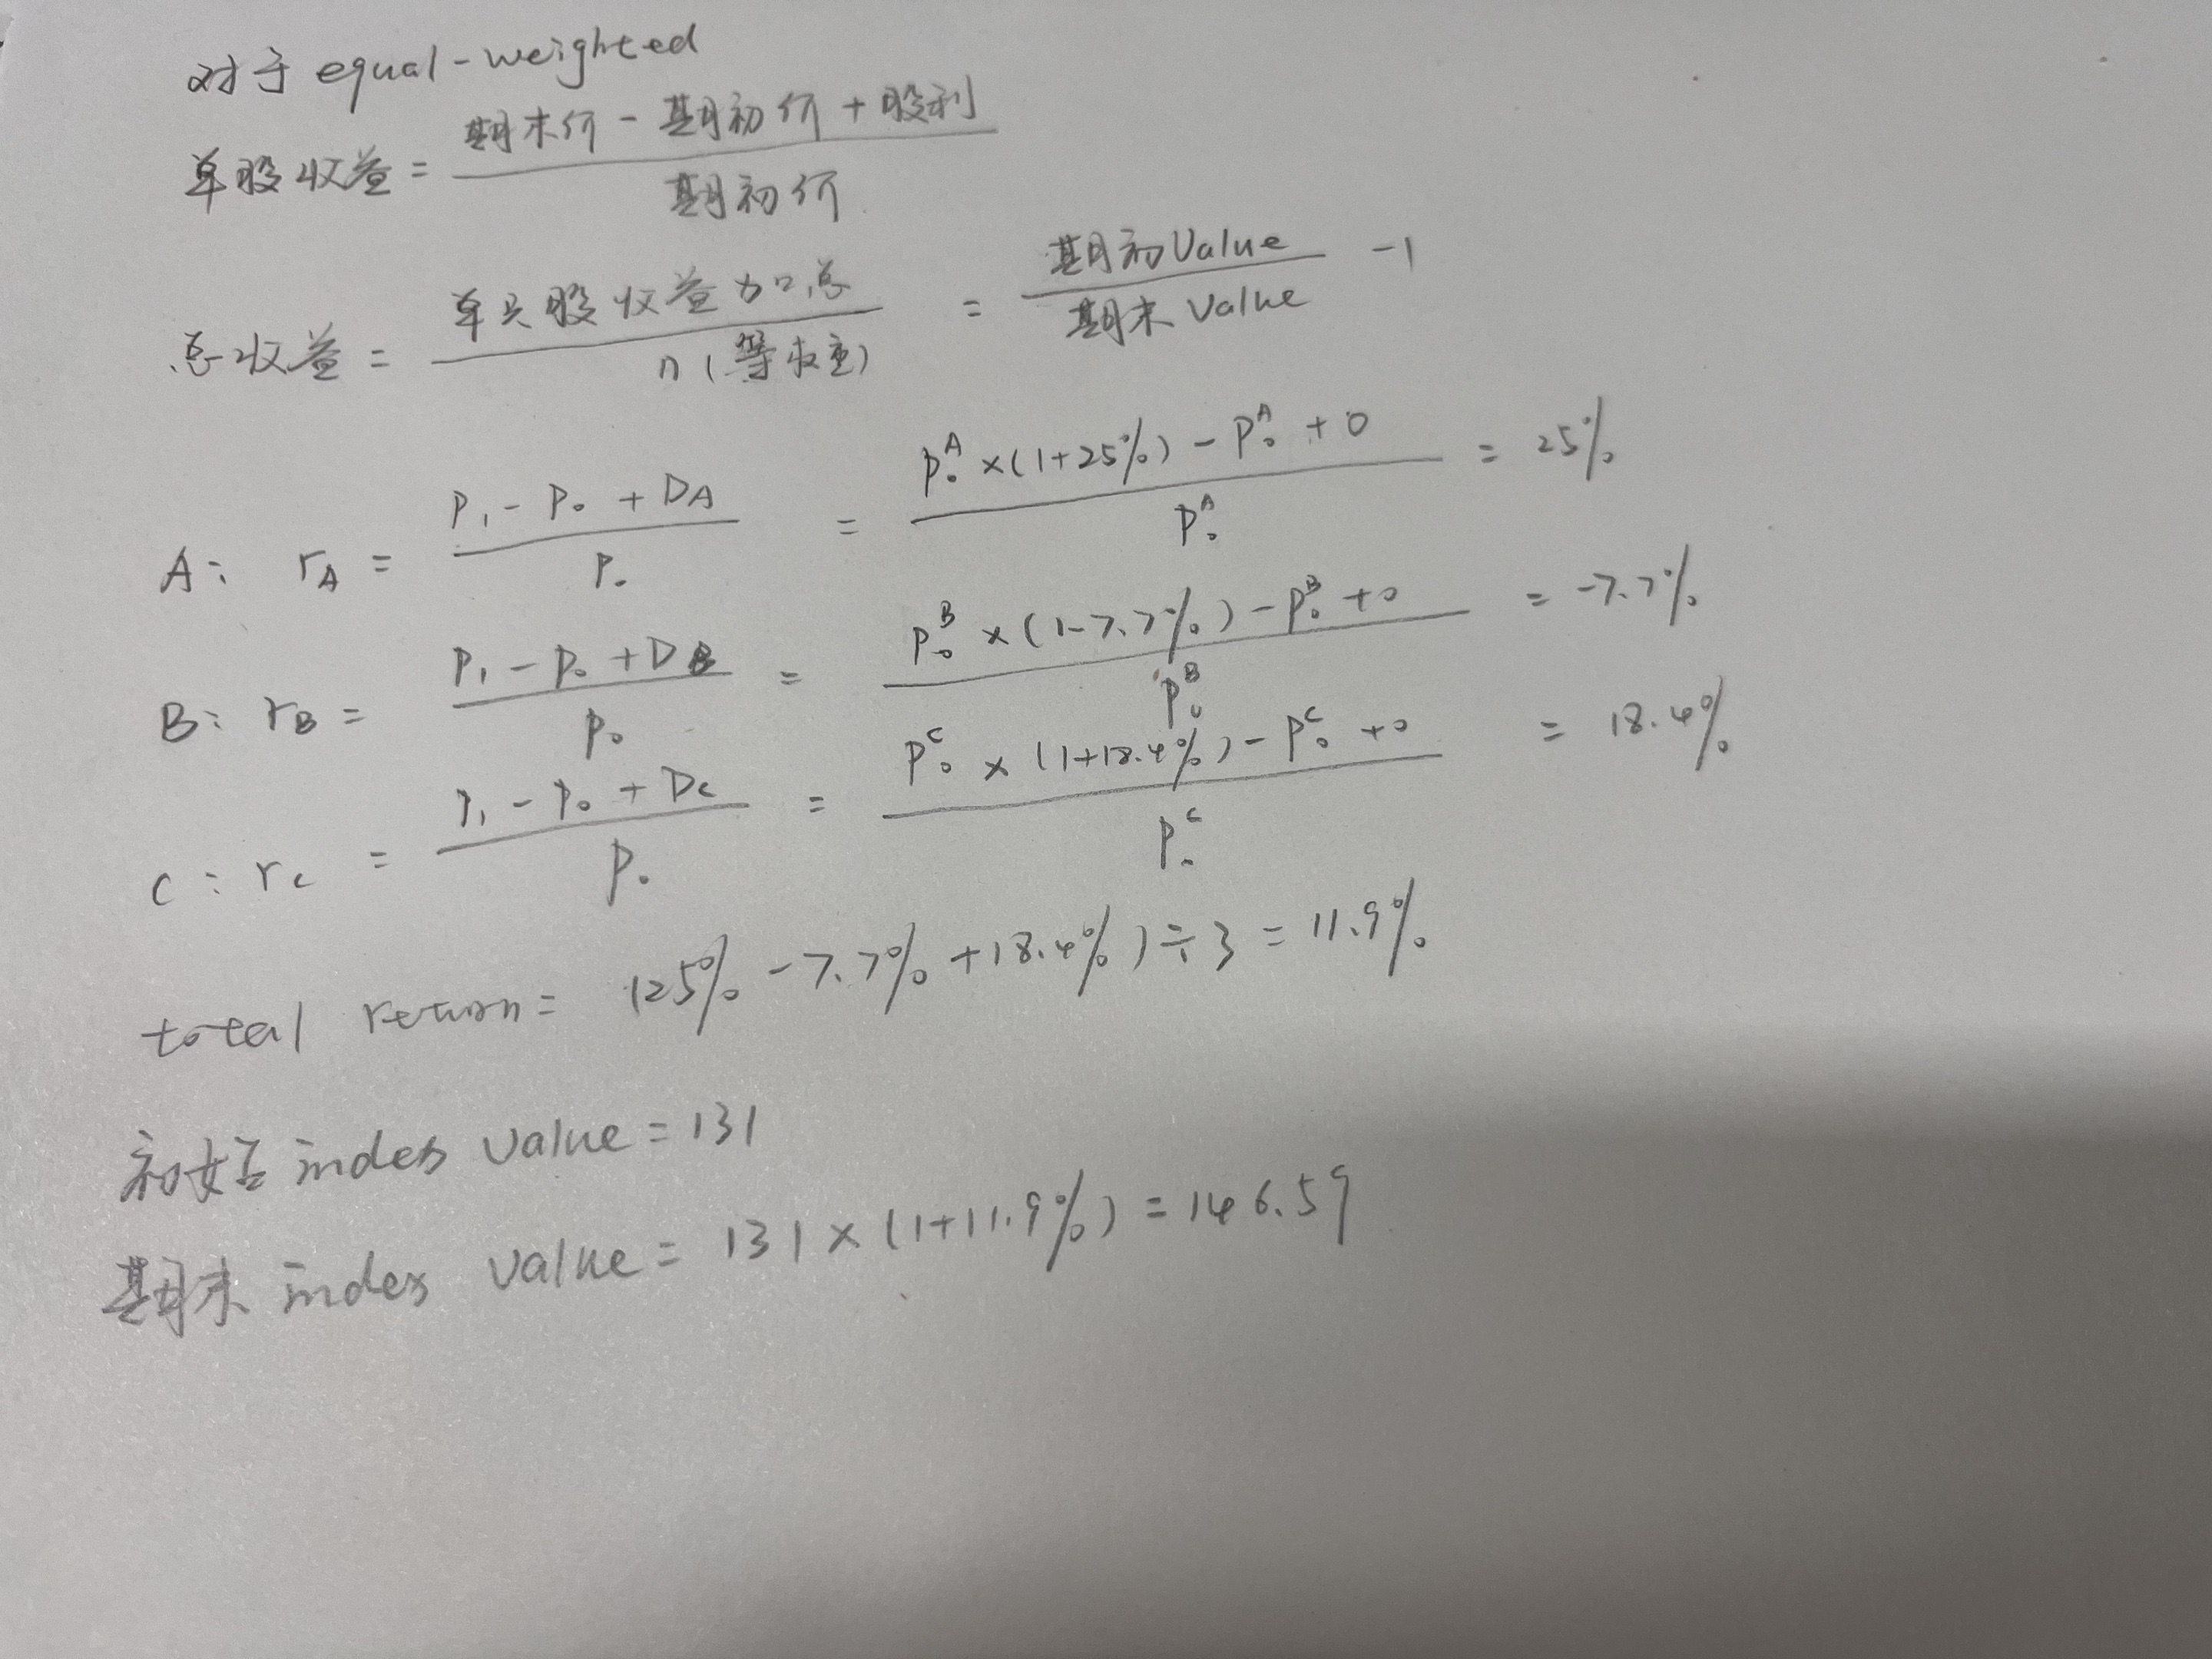 对于 equal-weighted
单股收益 = (期末价 - 期初价 + 股利) / 期初价
总收益 = 单只股收益加总 / n (等权重) = 期初Value / 期末Value - 1
A: r_A = (P₁ - P₀ + D_A) / P₀ = (P₀^A × (1+25%) - P₀^A + 0) / P₀^A = 25%
B: r_B = (P₁ - P₀ + D_B) / P₀ = (P₀^B × (1-7.7%) - P₀^B + 0) / P₀^B = -7.7%
C: r_C = (P₁ - P₀ + D_C) / P₀ = (P₀^C × (1+18.4%) - P₀^C + 0) / P₀^C = 18.4%
total return = (25% - 7.7% + 18.4%) ÷ 3 = 11.9%
初始 index value = 131
期末 index value = 131 × (1+11.9%) = 146.59